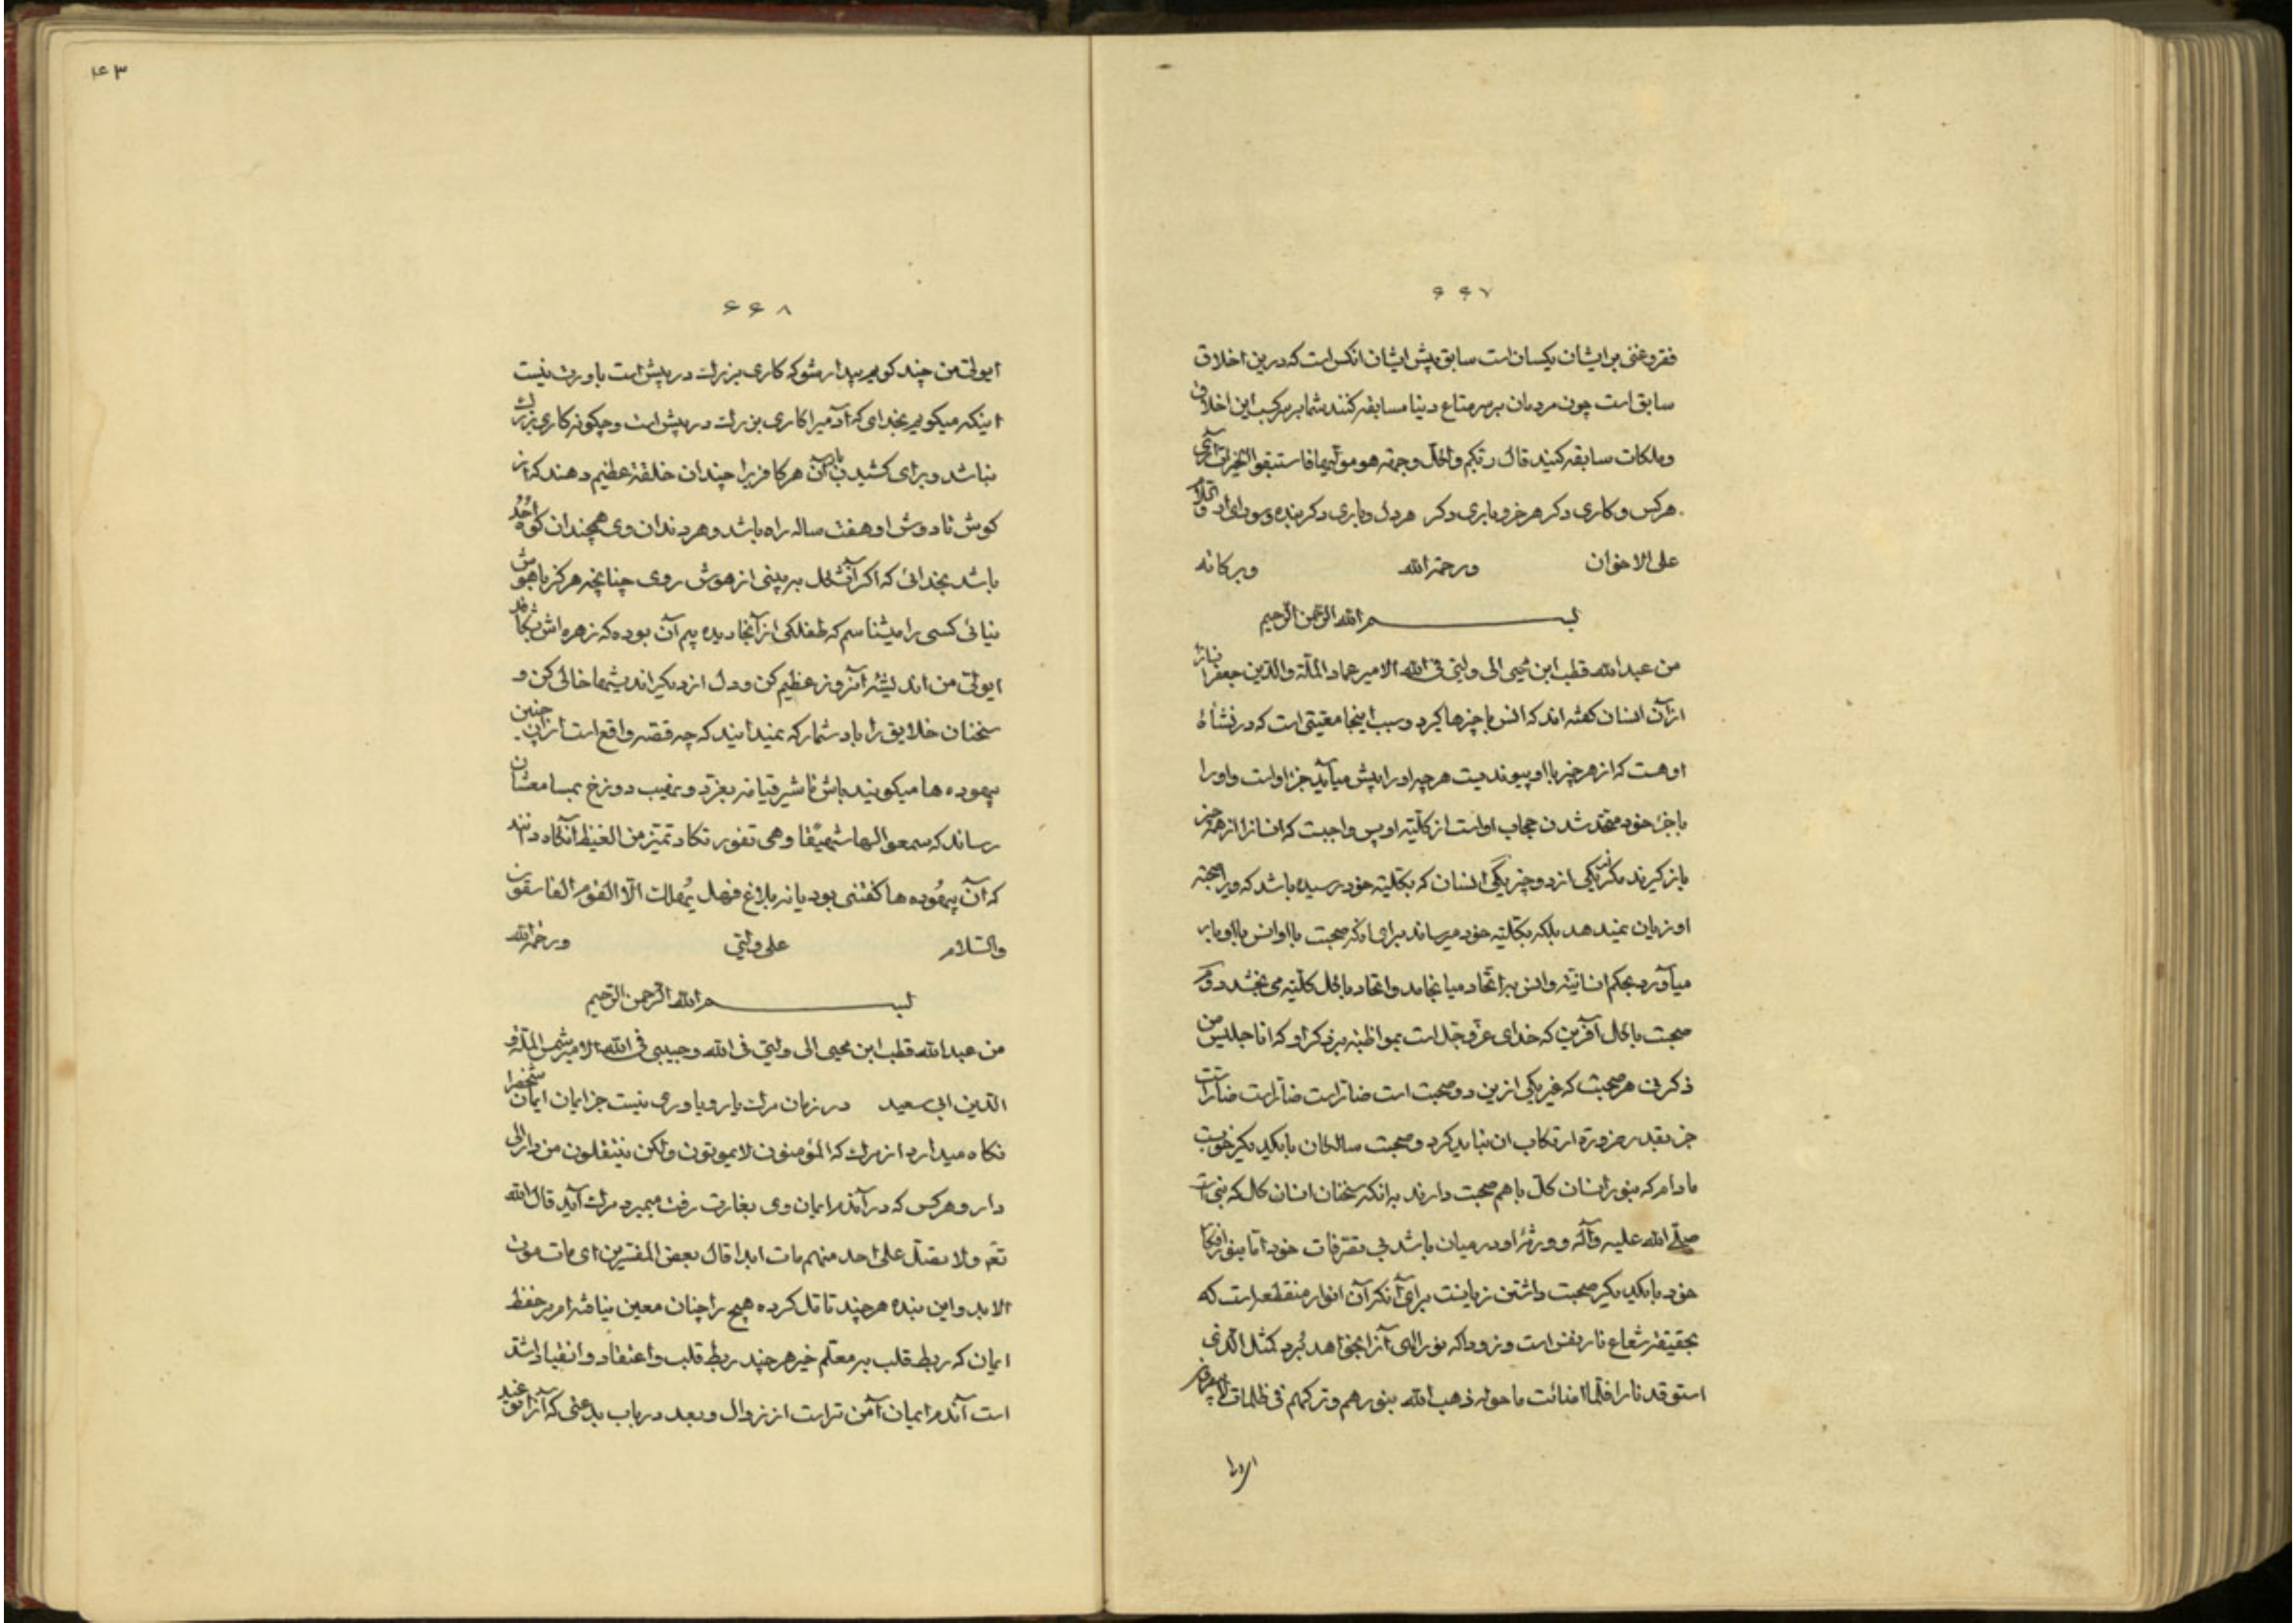 ۶۶۷
فقر و غنی بر ایشان یکسان است سابق پیش ایشان انکس است که درین اخلاق
سابق است چون مردمان بر سر متاع دینا مسابقه کنند شما بر سر کسب این اخلاق
و ملکات مسابقه کنید قال ربکم ولکل وجهة هو مولیها فاستبقوا الخیرات آری
هر کس و کاری دکر هر خر و باری دکر هر دل و یاری دکر بنده و سودای او
علی الاخوان ورحمة الله وبرکاته
بسم الله الرحمن الرحیم
من عبدالله قطب ابن محیی الی ولیی فی الله الامیر عماد الملة والدین جعفر
از آن انسان کفته اند که انس با چیزها کیرد و سبب اینجا معیتی است که در نشأهٔ
او هست که از هر چیز با او پیوندیست هر چه او را پیش میآید جزء اوست و او را
با جزء خود متحد شدن حجاب اوست از کلیته او پس واجبست که انسانرا از همه چیز
باز کیرند مکر یکی از دو چیز یکی انسان که بکلیته خود رسیده باشد که
او زیان نمیدهد بلکه بکلیته خود میرساند برای آنکه صحبت با او انس با او بار
میآورد بحکم انسانیته وانس بر اتحاد میانجامد و اتحاد با کل کلیته می بخشد دوم
صحبت با کل آفرین که خدای عز و جل است بمواظبته بر ذکر او که انا جلیس من
ذکرنی هر صحبت که غیر یکی از این دو صحبت است ضار است ضار است ضار است
جز بقدر ضرورة ارتکاب ان نباید کرد و صحبت سالکان با یکدیکر خوبست
مادام که بنور انسان کل با هم صحبت دارند برانکه سخنان انسان کامل که نبی است
صلی الله علیه وآله و ورثهٔ او در میان باشد بی تصرفات خود اما بنور افکار
خود با یکدیکر صحبت داشتن زیانست برای آنکه آن انوار منقطعه است که
بحقیقة شعاع نار نفس است و زود است که نور الهی آنرا بخواهد بُرد کمثل الذی
استوقد نارا فلما اضائت ما حوله ذهب الله بنورهم وترکهم فی ظلمات لا یبصرون
ای ولی
۴۳
۶۶۸
ای ولی من چند کویم بیدار شو که کاری بزرک در پیش است باورت نیست
اینکه میکویم بخدای که آدمیرا کاری بزرک در پیش است و چکونه کاری بزرک
نباشد و برای کشیدن بار آن هر کافریرا چندان خلقة عظیم دهند که از
کوش تا دوش او هفت ساله راه باشد و هر دندان وی همچندان کوه اُحُد
باشد بخدائی که اکر آنشکل به بینی از هوش روی چنانچه هرکز با هوش
نیائی کسی را میشناسم که طفلکی از آنجا دیده بیم آن بوده که زهره اش بشکافد
ای ولی من اندیشهٔ آنروز عظیم کن و دل از دیکر اندیشها خالی کن و
سخنان خلایق را باد شمار که نمیدانند که چه قصه واقع است از آن چنین
بیهوده ها میکویند باش تا شیر قیامه بغرّد و نهیب دوزخ بمسامعشان
رساند که سمعوا لها شهیقا وهی تفور تکاد تمیز من الغیظ آنکاه دانند
که آن بیهُوده ها کفتنی بود یا نه بلاغ فهل یُهلک الّا القوم الفاسقون
والسلام علی ولیی ورحمة الله
بسم الله الرحمن الرحیم
من عبدالله قطب ابن محیی الی ولیی فی الله وحبیبی فی الله الامیر شمس الملة و
الدین ابی سعید در زمان مرک یار و یاوری نیست جز ایمان ایمان شخصرا
نکاه میدارد از مرک که المؤمنون لا یموتون ولکن ینتقلون من دار الی
دار و هر کس که در آندم ایمان وی بغارت رفت میمیرد مرک آید قال الله
تع ولا تصل علی احد منهم مات ابدا قال بعض المفسرین ای مات موت
الابد و این بنده هر چند تامل کرده هیچ را چنان معین نیافته ام بر حفظ
ایمان که ربط قلب بر معلم خیر هر چند ربط قلب و اعتقاد و انقیاد اشد
است آندم ایمان آمن تر است از زوال و بعد در باب بدعتی که آنرا